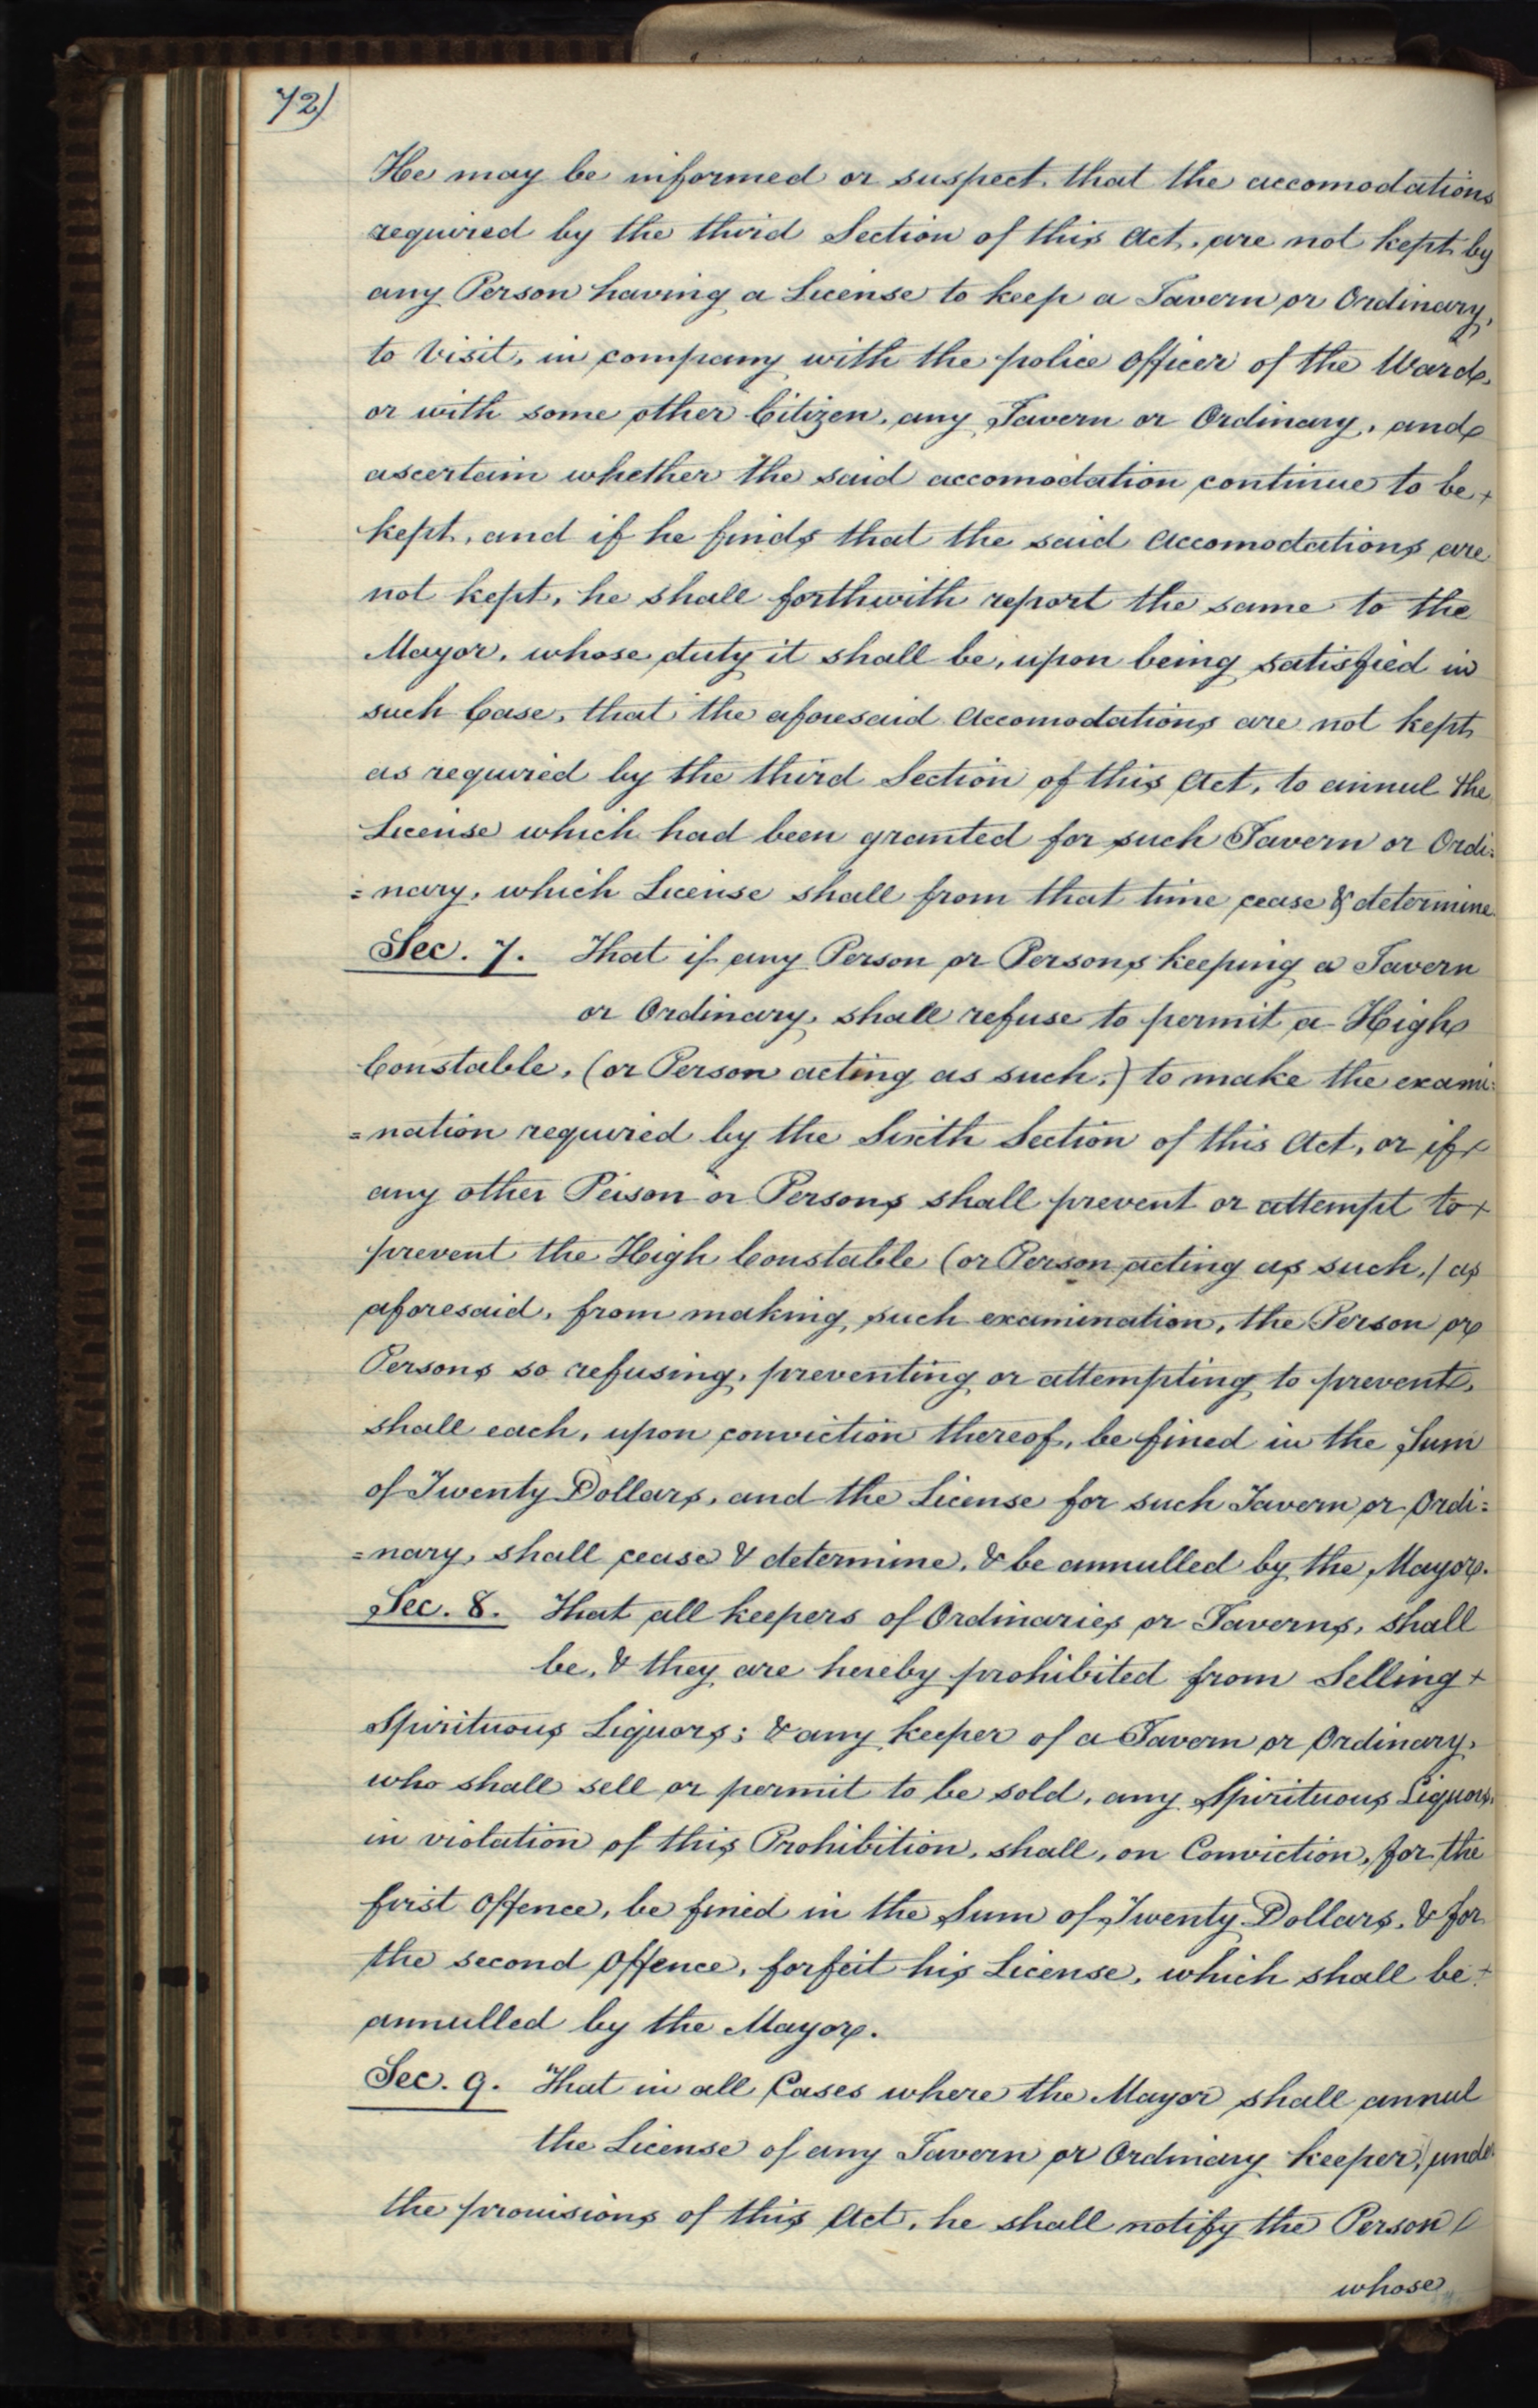 72)
He may be informed or suspect, that the accomodations
required by the third Section of this Act, are not kept by
any Person having a License to keep a Tavern or Ordinary,
to Visit, in company with the police Officer of the Ward,
or with some other Citizen, any Tavern or Ordinary, and
ascertain whether the said accomodation continue to be
kept, and if he finds that the said Accomodations are
not kept, he shall forthwith report the same to the
Mayor, whose duty it shall be, upon being satisfied in
such Case, that the aforesaid Accomodations are not kept
as required by the third Section of this Act, to annul the
License which had been granted for such Tavern or Ordi=
=nary, which License shall from that time cease & determine.
Sec. 7. That if any Person or Persons keeping a Tavern
or Ordinary, shall refuse to permit a High
Constable, (or Person acting as such,) to make the exami=
=nation required by the Sixth Section of this Act, or if
any other Person or Persons shall prevent or attempt to
prevent the High Constable (or Person acting as such,) as
aforesaid, from making such examination, the Person or
Persons so refusing, preventing or attempting to prevent,
shall each, upon conviction thereof, be fined in the Sum
of Twenty Dollars, and the License for such Tavern or Ordi=
=nary, shall cease & determine, & be annulled by the Mayor.
Sec. 8. That all keepers of Ordinaries or Taverns, shall
be, & they are hereby prohibited from Selling
Spirituous Liquors; & any keeper of a Tavern or Ordinary,
who shall sell or permit to be sold, any Spirituous Liquors,
in violation of this Prohibition, shall, on Conviction, for the
first Offence, be fined in the Sum of Twenty Dollars, & for
the second Offence, forfeit his License, which shall be
annulled by the Mayor.
Sec. 9. That in all Cases where the Mayor shall annul
the License of any Tavern or Ordinary keeper, under
the provisions of this Act, he shall notify the Person
whose